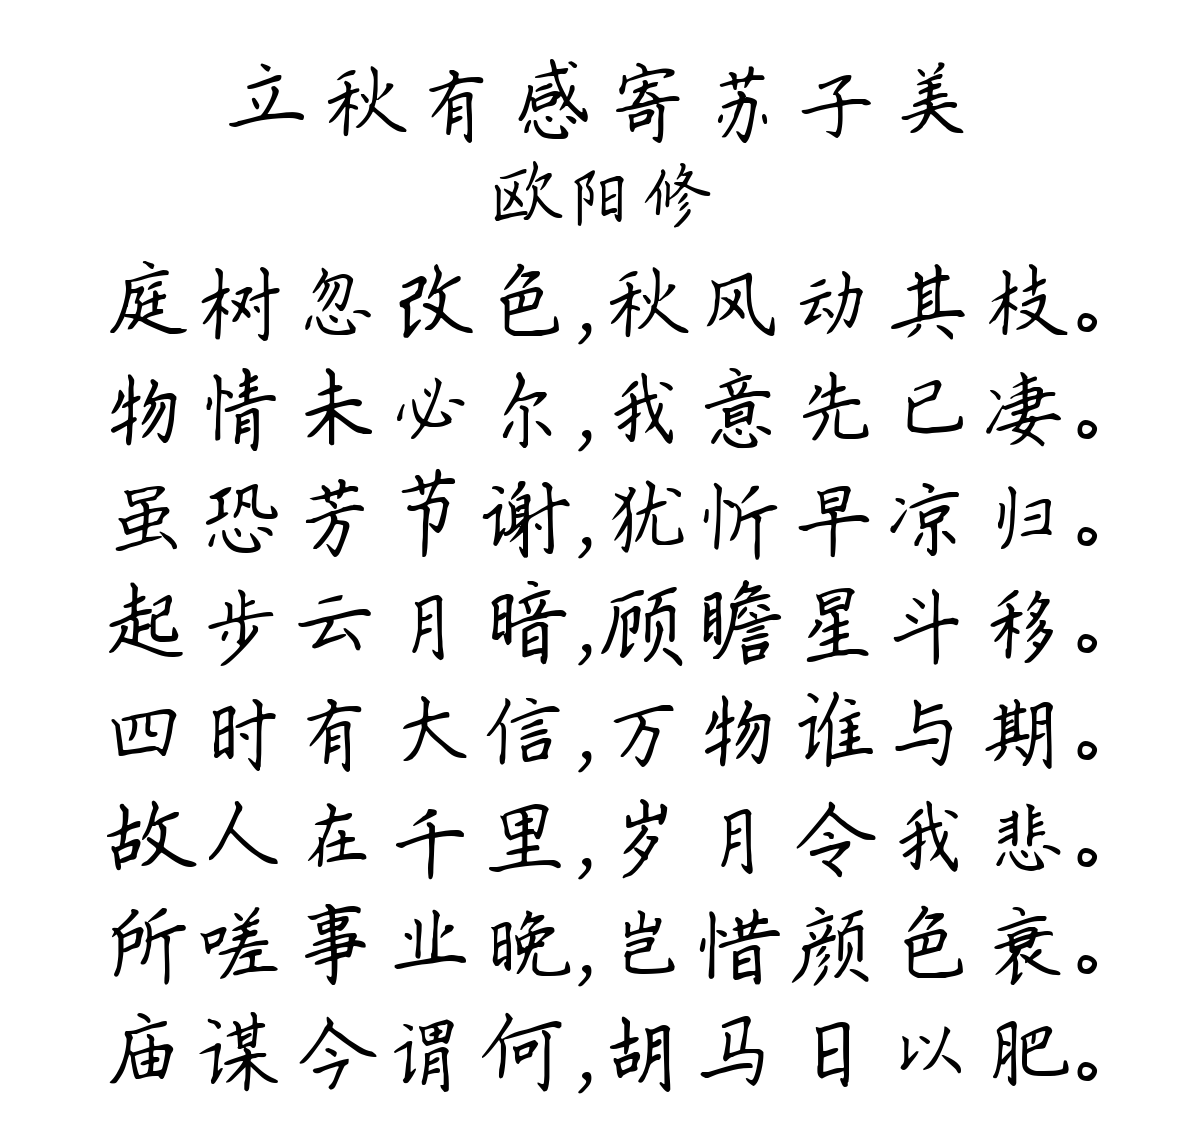 立秋有感寄苏子美
欧阳修
庭树忽改色,秋风动其枝。
物情未必尔,我意先已凄。
虽恐芳节谢,犹忻早凉归。
起步云月暗,顾瞻星斗移。
四时有大信,万物谁与期。
故人在千里,岁月令我悲。
所嗟事业晚,岂惜颜色衰。
庙谋今谓何,胡马日以肥。